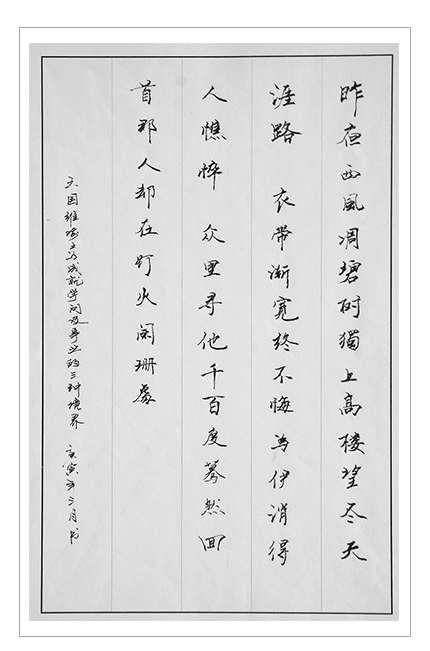 昨夜西風凋碧树獨上高楼望尽天
涯路 衣帶漸寬终不悔为伊消得
人憔悴 众里寻他千百度蓦然回
首那人却在灯火阑珊處
王国维喻之为成就学问及事业的三种境界 庚寅年三月书